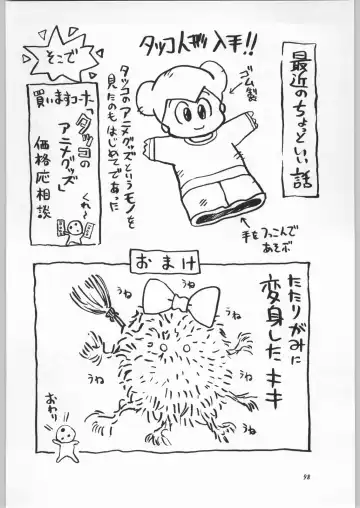 最近のちょっといい話
タッコ人形入手!!
ゴム製
タッコのアニメグッズというモノを
見たのもはじめてであった
手をつっこんで
あそぶ
そこで
買いますコーナー
「タッコの
アニメグッズ」
価格応相談
くれ〜
おまけ
たたりがみに
変身したキキ
うね
うね
うね
うね
うね
うね
うね
おわり
98